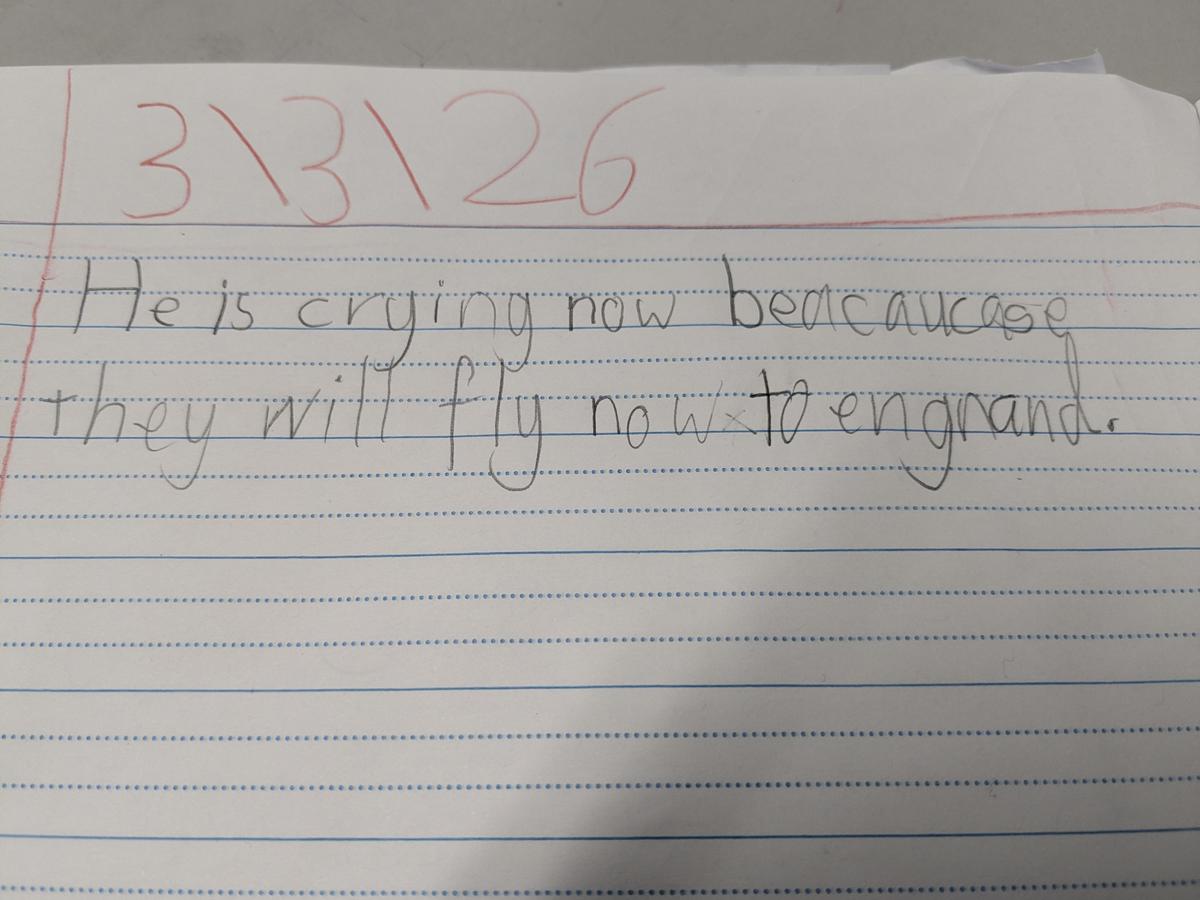 3\3\26
He is crying now beacaucase
they will fly now to engnand.